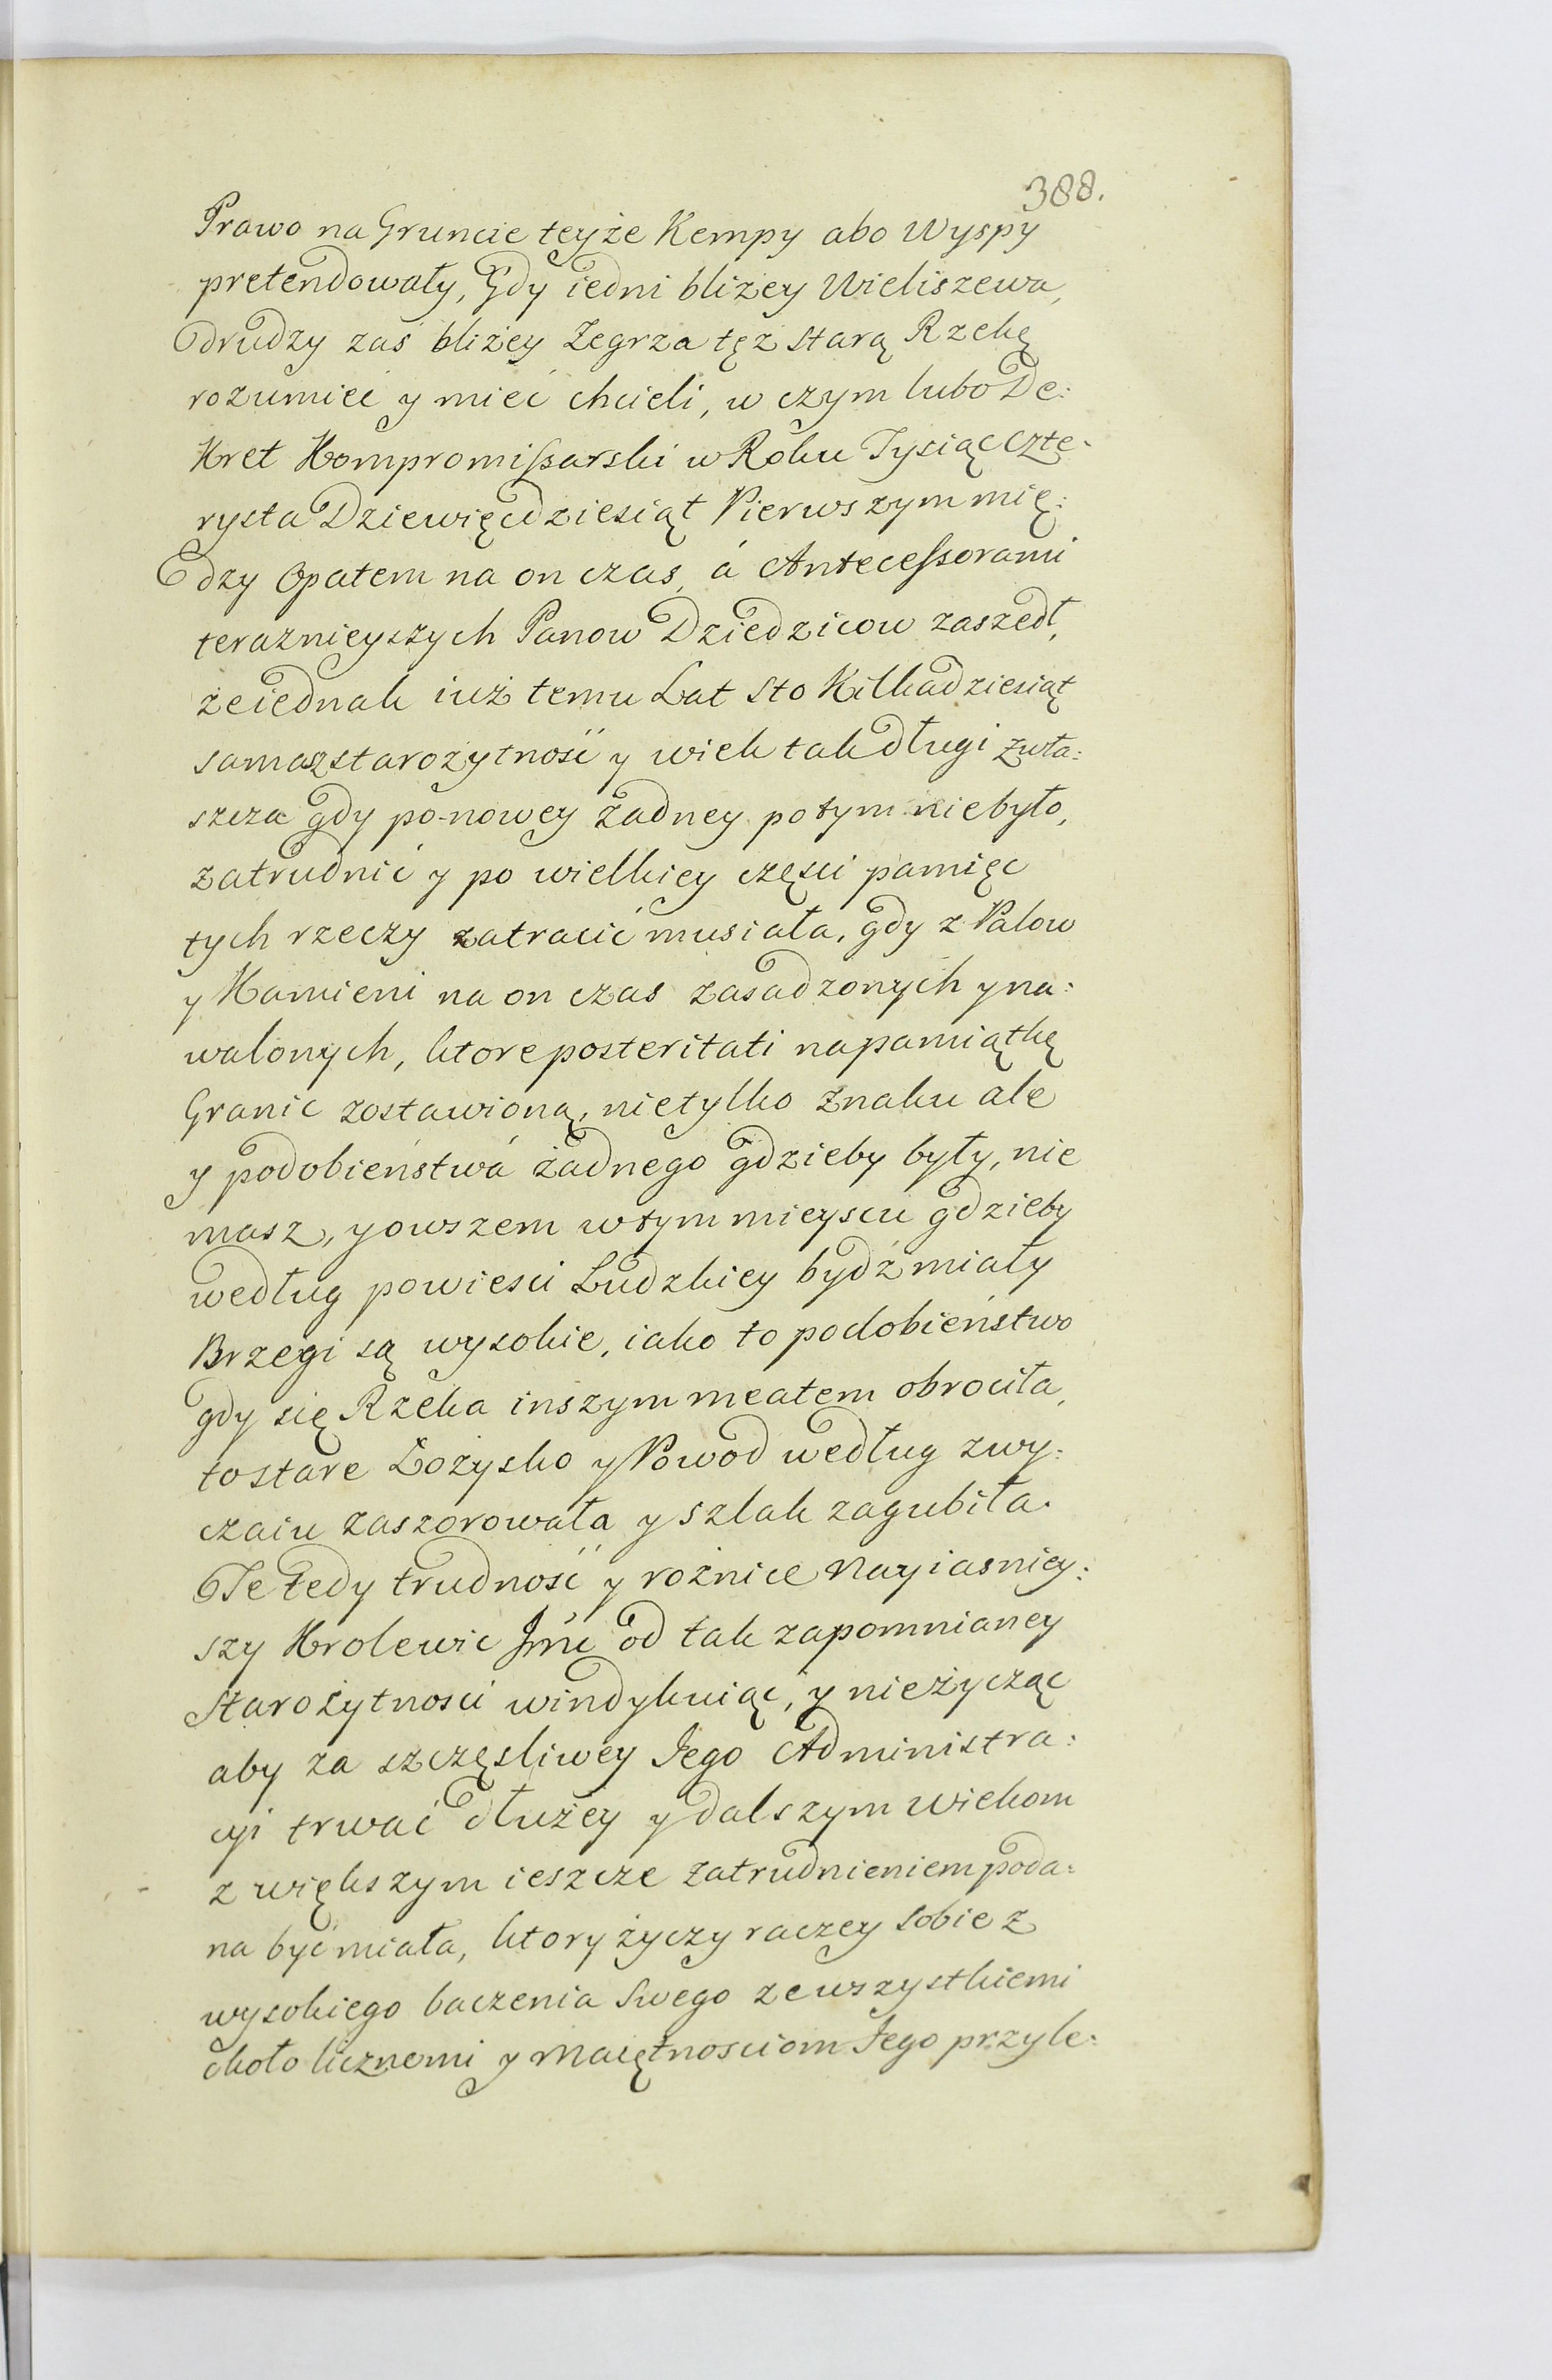 388.
Prawo na Gruncie teyże Kempy abo Wyspy
pretendowały, Gdy iedni bliżey Wieliszewa,
drudzy zaś bliżey Zegrza tęż starą Rzekę
rozumieć y mieć chcieli, w czym lubo De:
kret Kompromißarski w Roku Tysiąc Czte:
rysta Dziewięcdziesiąt Pierwszym mię:
dzy Opatem na on czas, á Anteceßorami
teraznieyszych Panow Dziedzicow zaszedł,
że iednak iuż temu Lat sto Kilkadziesiąt
sama starożytność y wiek tak długi zwła:
szcza gdy po-nowey żadney potym niebyło,
zatrudnić y po wielkiey częsci pamięc
tych rzeczy zatracić musiała, gdy z Palow
y Kamieni na on czas zasadzonych y na:
walonych, ktore posteritati na pamiątkę
Granic zostawioną, nietylko znaku ale
y podobieństwá żadnego gdzieby były, nie
masz, y owszem w tym mieyscu gdzieby
według powiesci Ludzkiey bydź miały
Brzegi są wysokie, iako to podobieństwo
gdy się Rzeka inszym meatem obrociła,
to stare Łożysko y Powod według zwy:
czaiu zaszorowała y szlak zagubiła.
Te tedy trudność y rożnice Nayiasniey:
szy Krolewic Jmć od tak zapomnianey
Starożytnosci windykuiąc, y nieżycząc
aby za szczęsliwey Jego Administra:
cyi trwać dłużey y dalszym wiekom
z większym ieszcze zatrudnieniem poda:
na być miała, ktory życzy raczey sobie z
wysokiego baczenia swego ze wszystkiemi
około licznemi y Maiętnosciom Jego przyle: